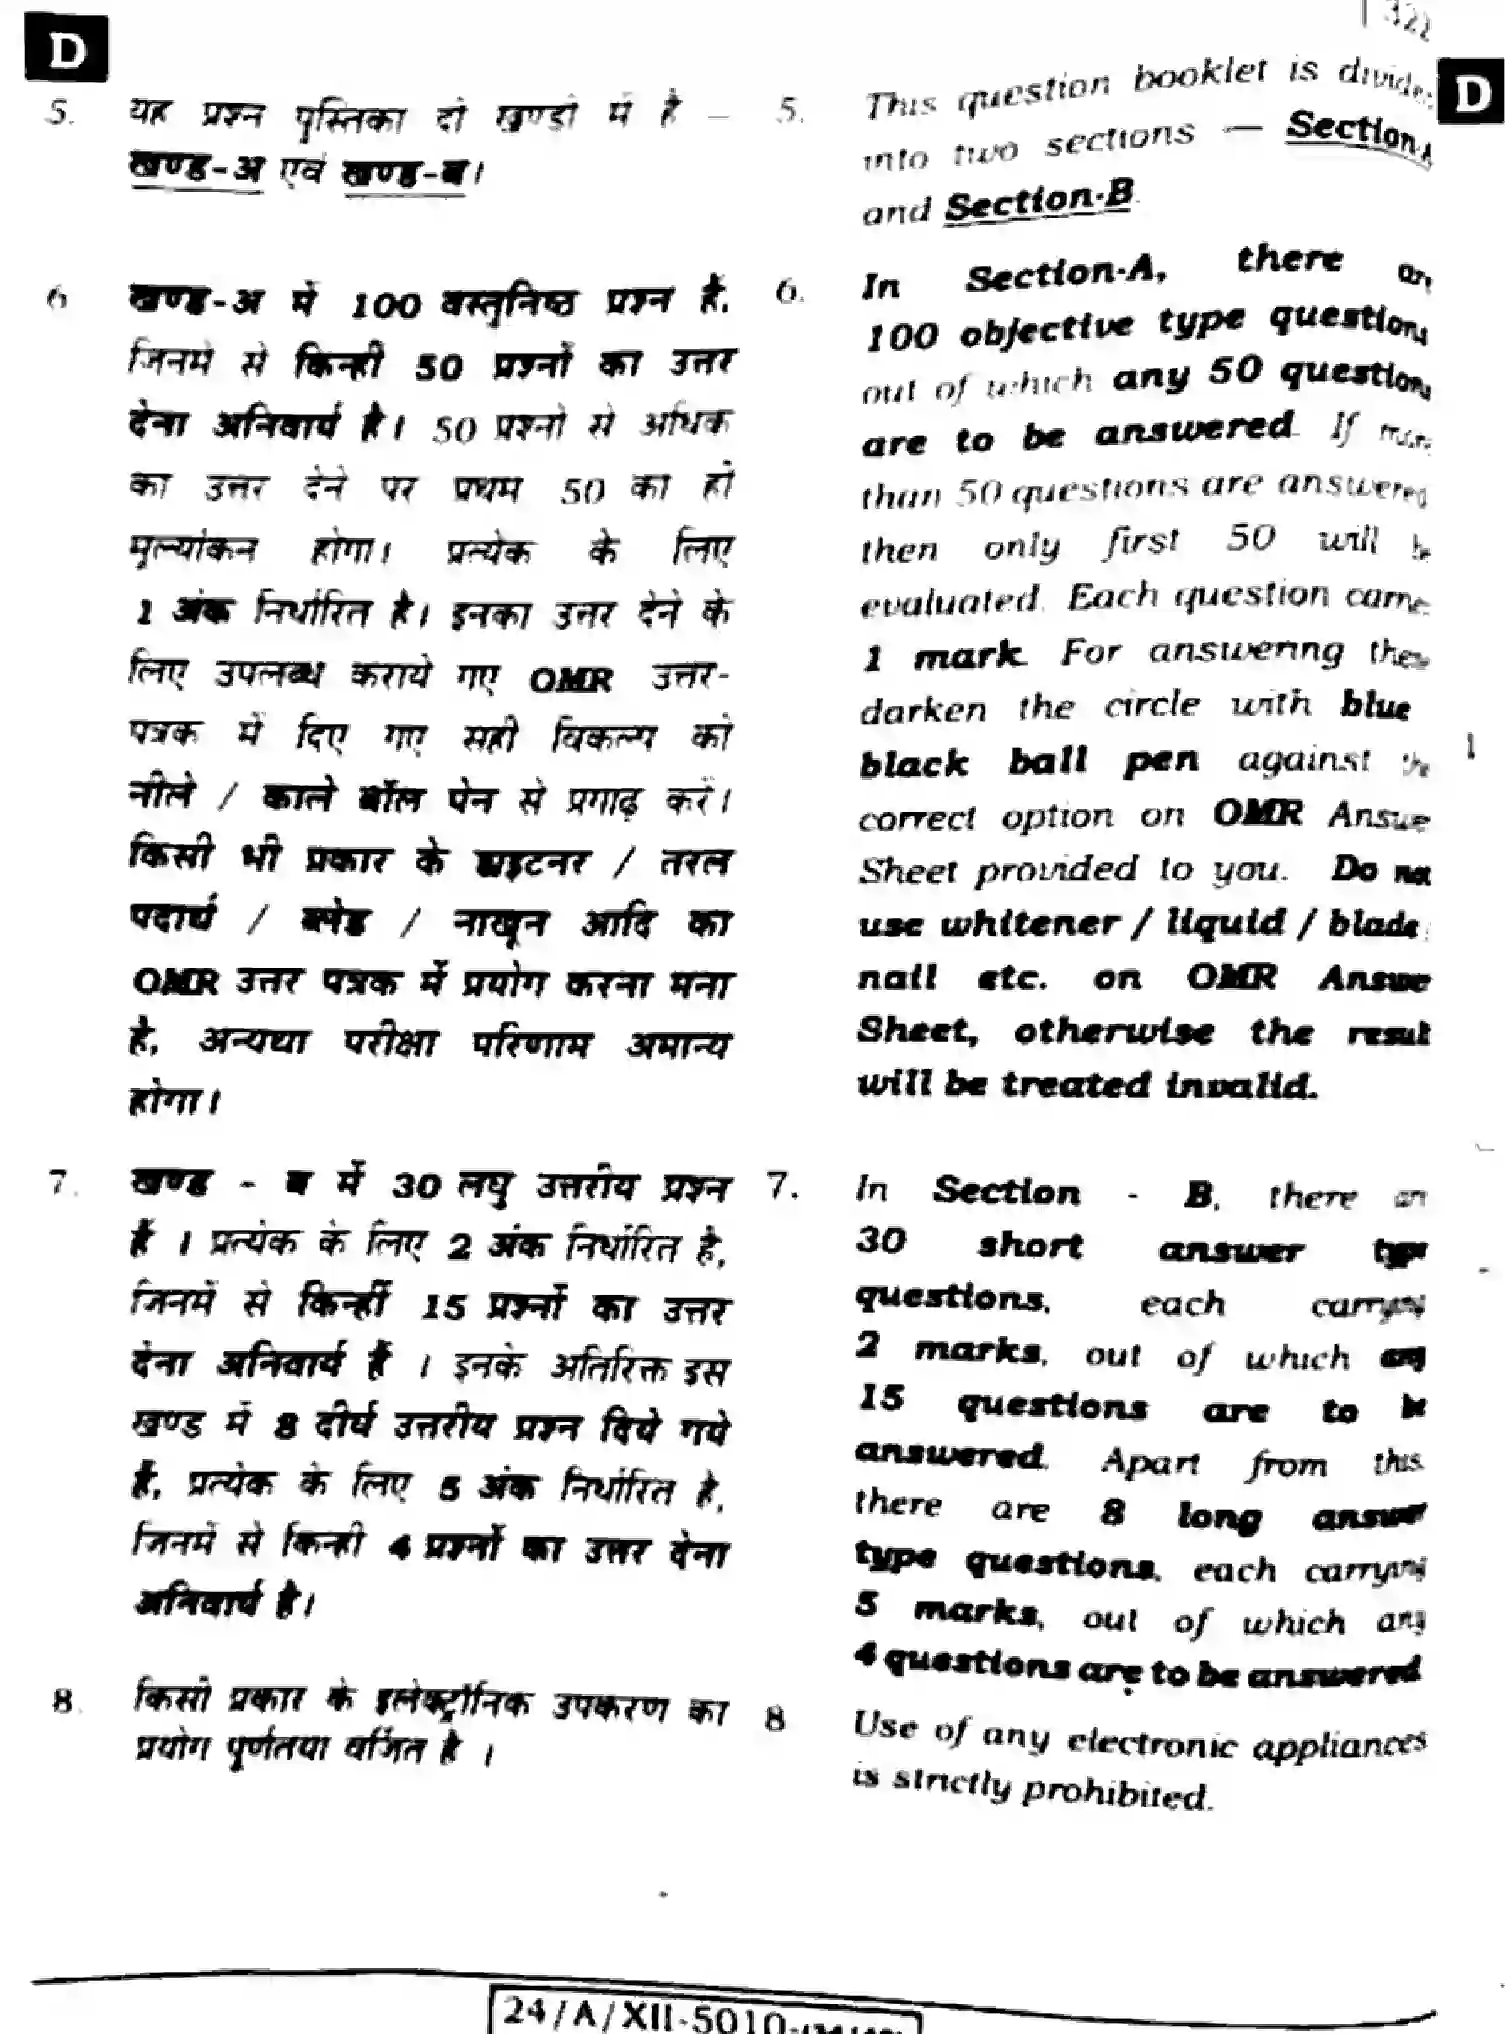 D
322
D
5. यह प्रश्न पुस्तिका दो खण्डों में है –
खण्ड-अ एवं खण्ड-ब।
6 खण्ड-अ में 100 वस्तुनिष्ठ प्रश्न हैं,
जिनमें से किन्हीं 50 प्रश्नों का उत्तर
देना अनिवार्य है। 50 प्रश्नों से अधिक
का उत्तर देने पर प्रथम 50 का ही
मूल्यांकन होगा। प्रत्येक के लिए
1 अंक निर्धारित है। इनका उत्तर देने के
लिए उपलब्ध कराये गए OMR उत्तर-
पत्रक में दिए गए सही विकल्प को
नीले / काले बॉल पेन से प्रगाढ़ करें।
किसी भी प्रकार के ह्वाइटनर / तरल
पदार्थ / ब्लेड / नाखून आदि का
OMR उत्तर पत्रक में प्रयोग करना मना
है, अन्यथा परीक्षा परिणाम अमान्य
होगा।
7. खण्ड - ब में 30 लघु उत्तरीय प्रश्न
हैं । प्रत्येक के लिए 2 अंक निर्धारित है,
जिनमें से किन्हीं 15 प्रश्नों का उत्तर
देना अनिवार्य हैं । इनके अतिरिक्त इस
खण्ड में 8 दीर्घ उत्तरीय प्रश्न दिये गये
हैं, प्रत्येक के लिए 5 अंक निर्धारित है,
जिनमें से किन्हीं 4 प्रश्नों का उत्तर देना
अनिवार्य है।
8. किसी प्रकार के इलेक्ट्रॉनिक उपकरण का
प्रयोग पूर्णतया वर्जित है ।
5. This question booklet is divide
into two sections — Section-A
and Section-B.
6. In Section-A, there are
100 objective type questions
out of which any 50 questions
are to be answered. If more
than 50 questions are answered
then only first 50 will be
evaluated. Each question carrie
1 mark. For answering these
darken the circle with blue
black ball pen against the
correct option on OMR Answe
Sheet provided to you. Do not
use whitener / liquid / blade
nail etc. on OMR Answe
Sheet, otherwise the result
will be treated invalid.
7. In Section - B, there are
30 short answer type
questions, each carrying
2 marks, out of which any
15 questions are to be
answered. Apart from this
there are 8 long answer
type questions, each carrying
5 marks, out of which any
4 questions are to be answered
8 Use of any electronic appliances
is strictly prohibited.
24/A/XII-5010